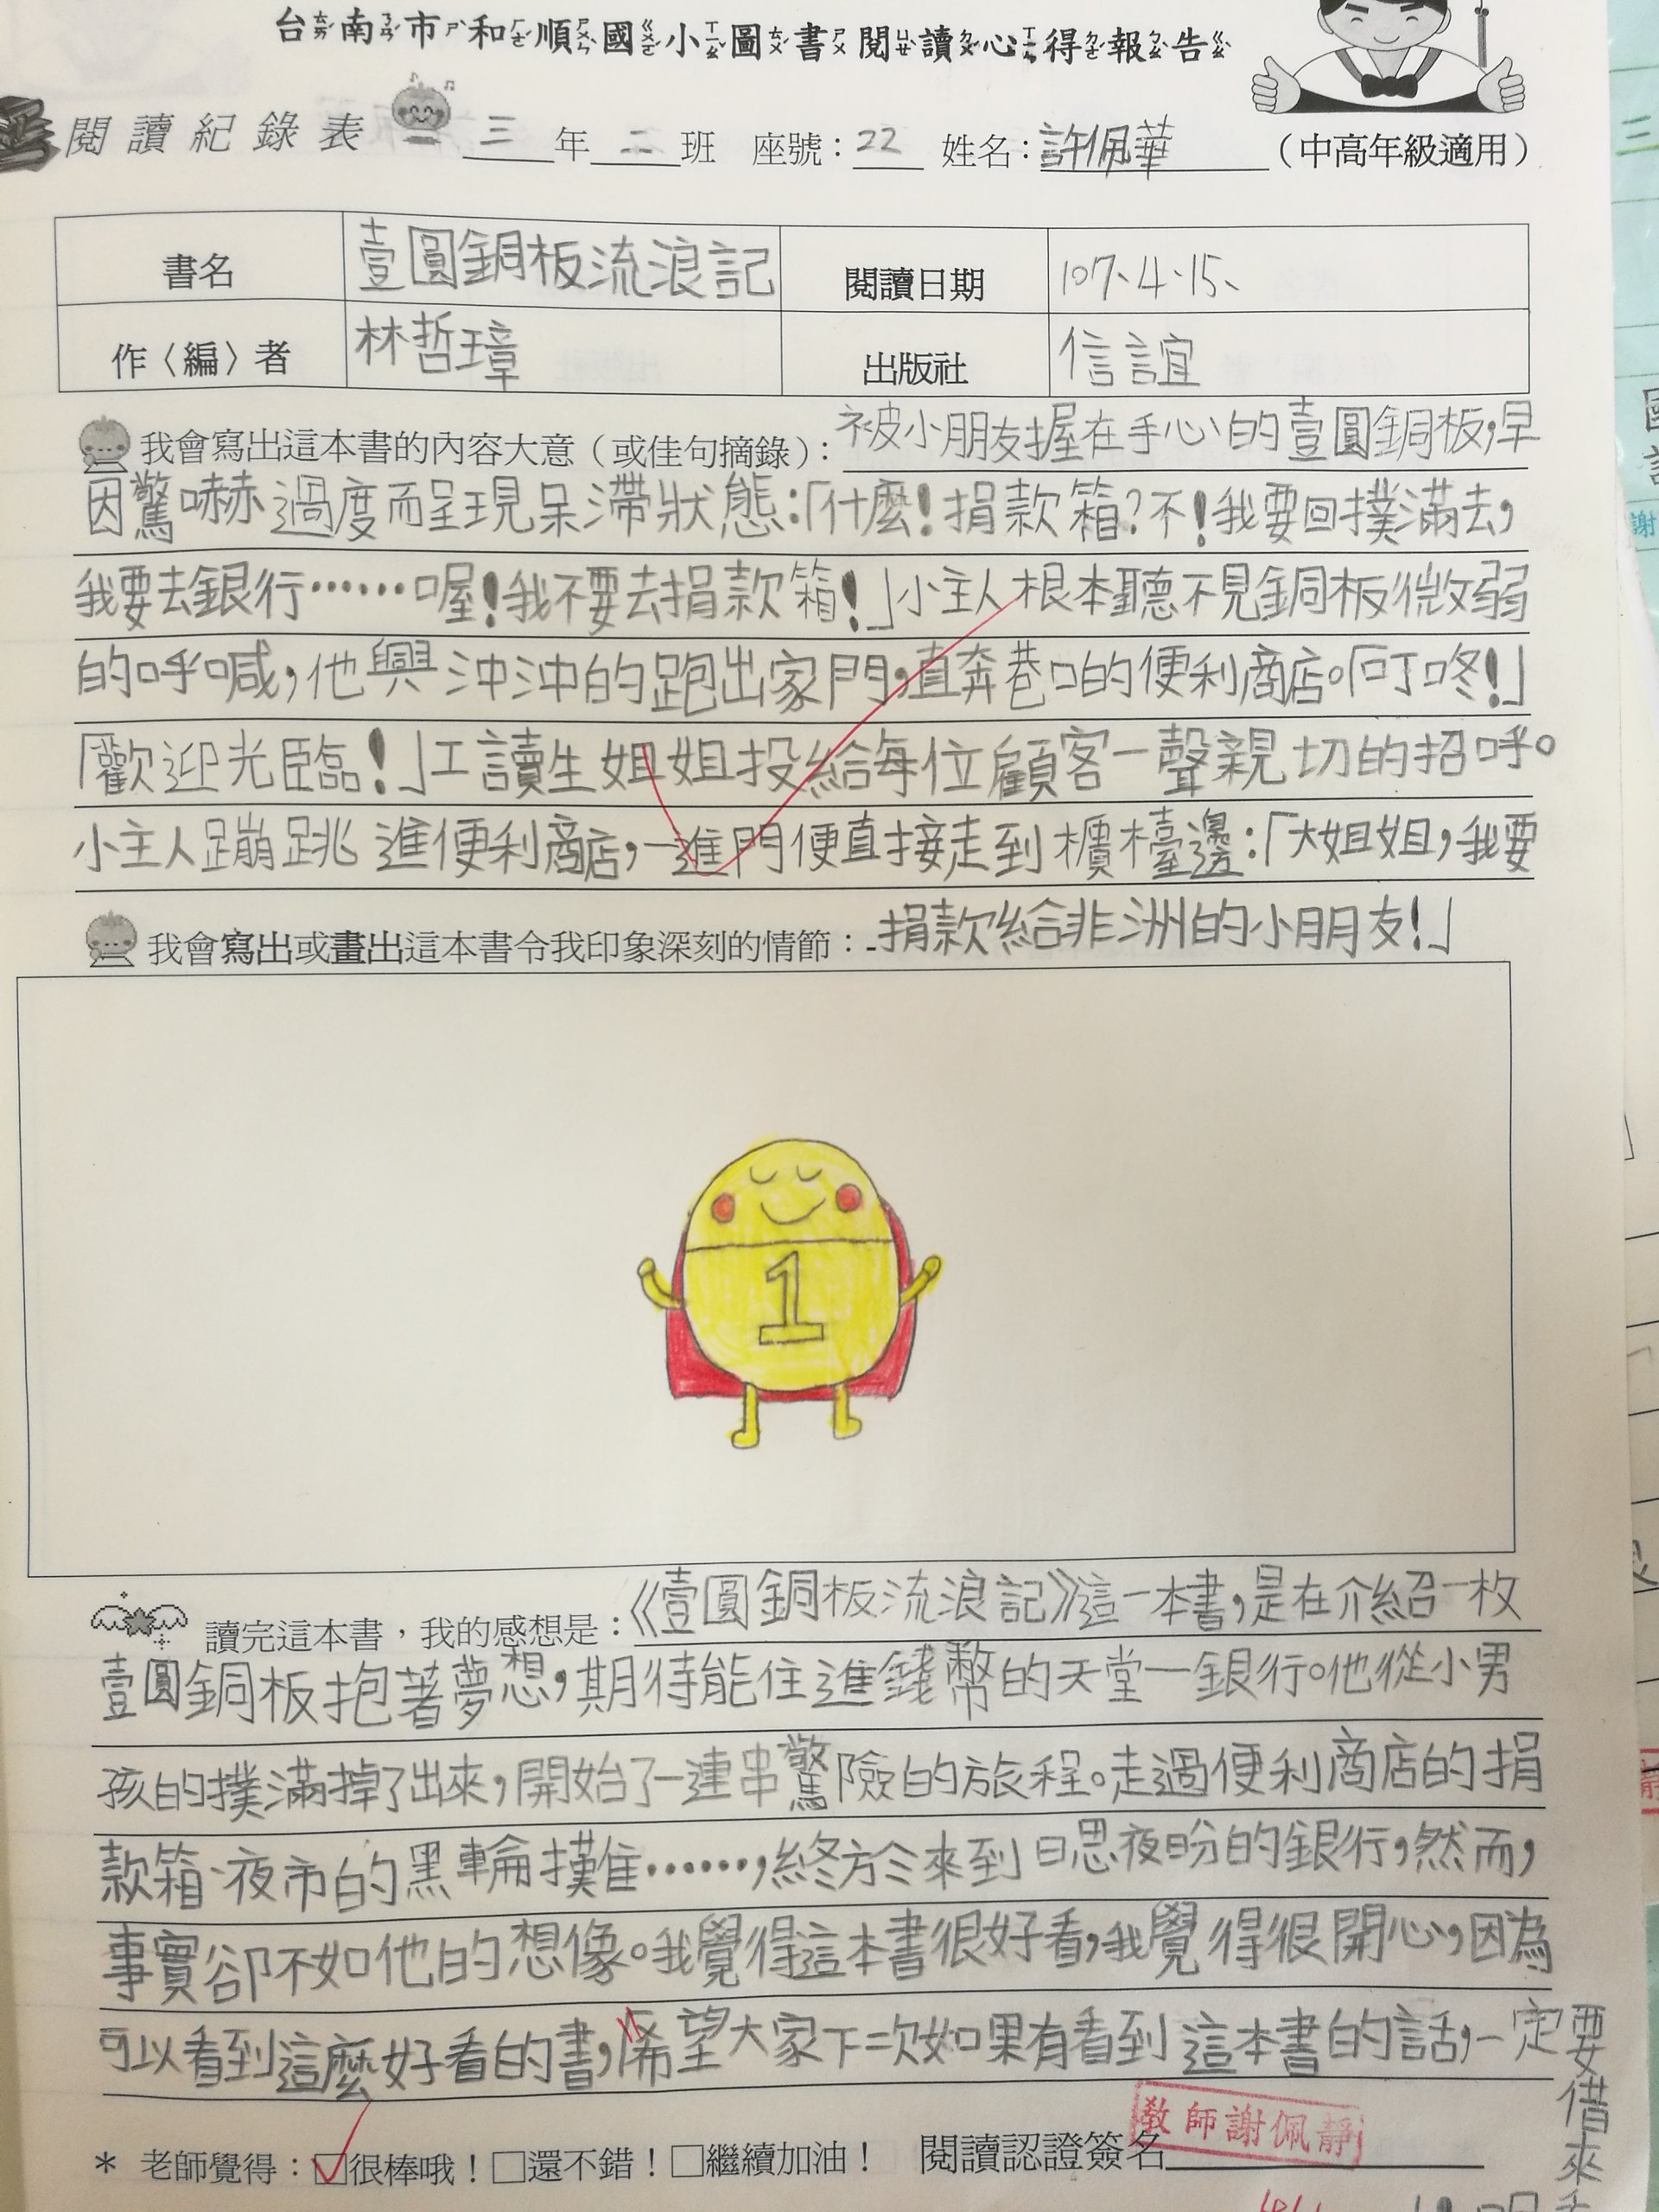 台南市和順國小圖書閱讀心得報告
閱讀紀錄表 三年二班 座號：22 姓名：許佩華 （中高年級適用）
書名 壹圓銅板流浪記 閱讀日期 107、4、15、
作〈編〉者 林哲璋 出版社 信誼
我會寫出這本書的內容大意（或佳句摘錄）：被小朋友握在手心的壹圓銅板，早
因驚嚇過度而呈現呆滯狀態：「什麼！捐款箱？不！我要回撲滿去，
我要去銀行……喔！我不要去捐款箱！」小主人根本聽不見銅板微弱
的呼喊，他興沖沖的跑出家門，直奔巷口的便利商店。「叮咚！」
「歡迎光臨！」工讀生姐姐投給每位顧客一聲親切的招呼。
小主人蹦跳進便利商店，一進門便直接走到櫃檯邊：「大姐姐，我要
我會寫出或畫出這本書令我印象深刻的情節：捐款給非洲的小朋友！」
1
讀完這本書，我的感想是：《壹圓銅板流浪記》這一本書，是在介紹一枚
壹圓銅板抱著夢想，期待能住進錢幣的天堂—銀行。他從小男
孩的撲滿掉了出來，開始了一連串驚險的旅程。走過便利商店的捐
款箱、夜市的黑輪攤……，終於來到日思夜盼的銀行，然而，
事實卻不如他的想像。我覺得這本書很好看，我覺得很開心，因為
可以看到這麼好看的書，希望大家下二次如果有看到這本書的話，一定要
借來
* 老師覺得：☑很棒哦！□還不錯！□繼續加油！ 閱讀認證簽名
教師謝佩靜